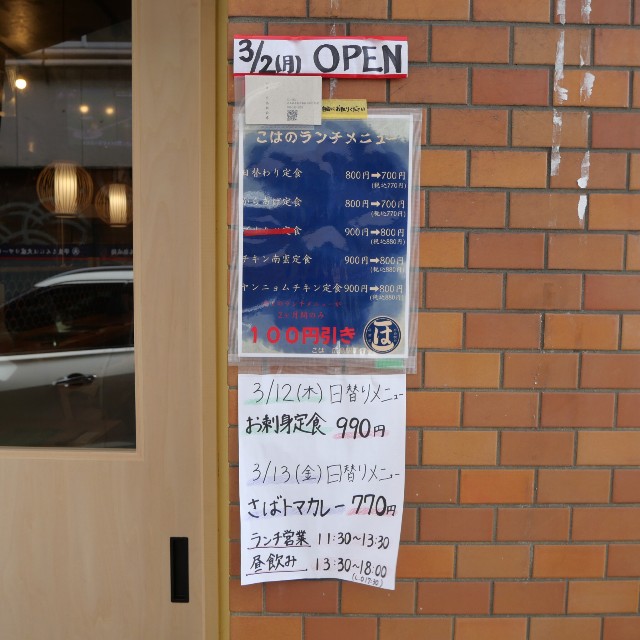 3/2(月) OPEN
こはのランチメニュー
日替わり定食 800円➡700円
(税込770円)
からあげ定食 800円➡700円
(税込770円)
定食 900円➡800円
(税込880円)
チキン南蛮定食 900円➡800円
(税込880円)
ヤンニョムチキン定食 900円➡800円
(税込880円)
100円引き
こは
は
3/12(木) 日替りメニュー
お刺身定食 990円
3/13(金) 日替りメニュー
さばトマカレー 770円
ランチ営業 11:30~13:30
昼飲み 13:30~18:00
(L.O17:30)